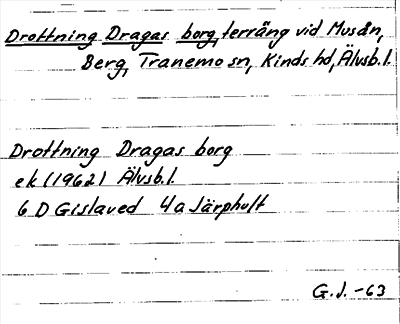 Drottning Dragas borg, terräng vid Musån,
Berg, Tranemo sn, Kinds hd, Älvsb.l.
Drottning Dragas borg
ek (1962) Älvsb.l.
6 D Gislaved 4a Järphult
G.J. -63